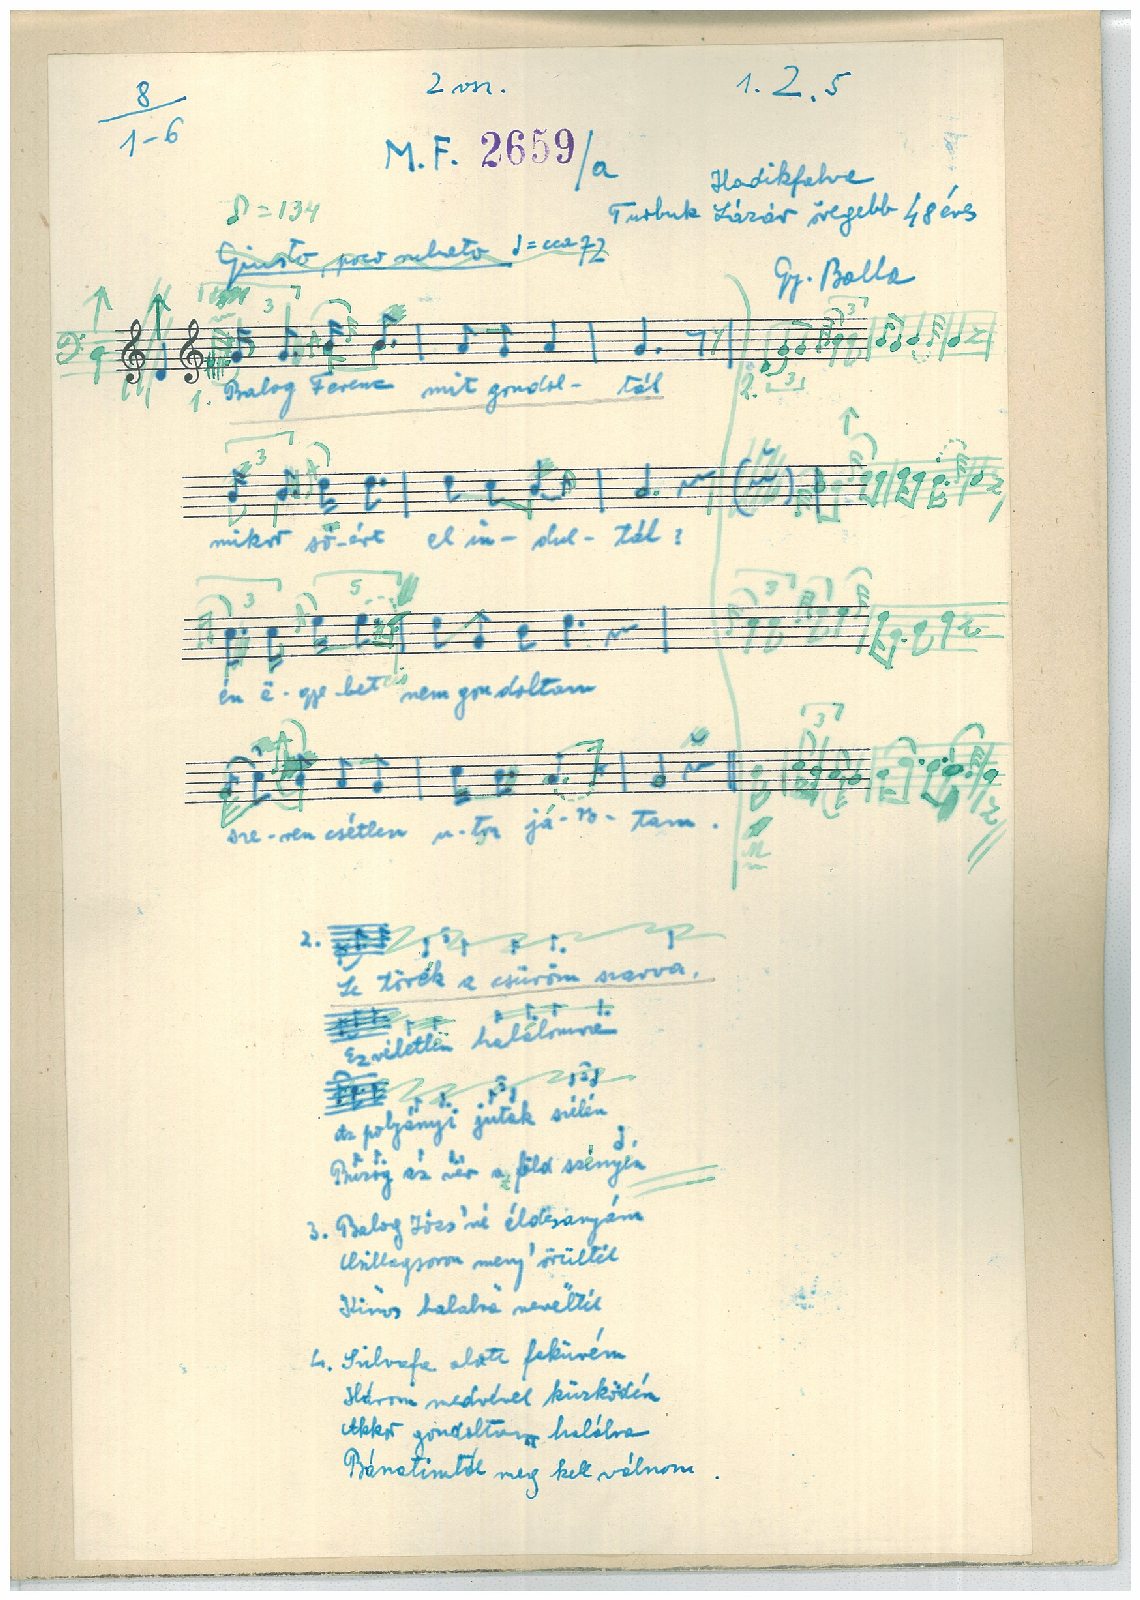 8
1-6
2 vsz.
1. 2. 5
M.F. 2659/a
Hadikfalva
♪ = 134
Turbuk Lázár öregebb 48 éves
Giusto, poco rubato ♩ = cca 72
Gy. Balla
1. Balog Ferenc mit gondol- tál
2.
mikor sö-ért el in- dul- tál?
én ë-gye-bet nem gondoltam
sze-ren csétlen u-tra já-r- tam.
2.
Le törék a csüröm szarva,
Ez véletlen halálomra
Az poljányi jutak szélén
Búzog az vér a föld színyén
3. Balog Józs'né éldesanyám
Csillagsoron meny' örültél
Kinos halalra neveltél
4. Szilvafa alatt feküvém
Három medvével küzködém
Akkor gondoltam halálra
Bánatimtól meg kell válnom.